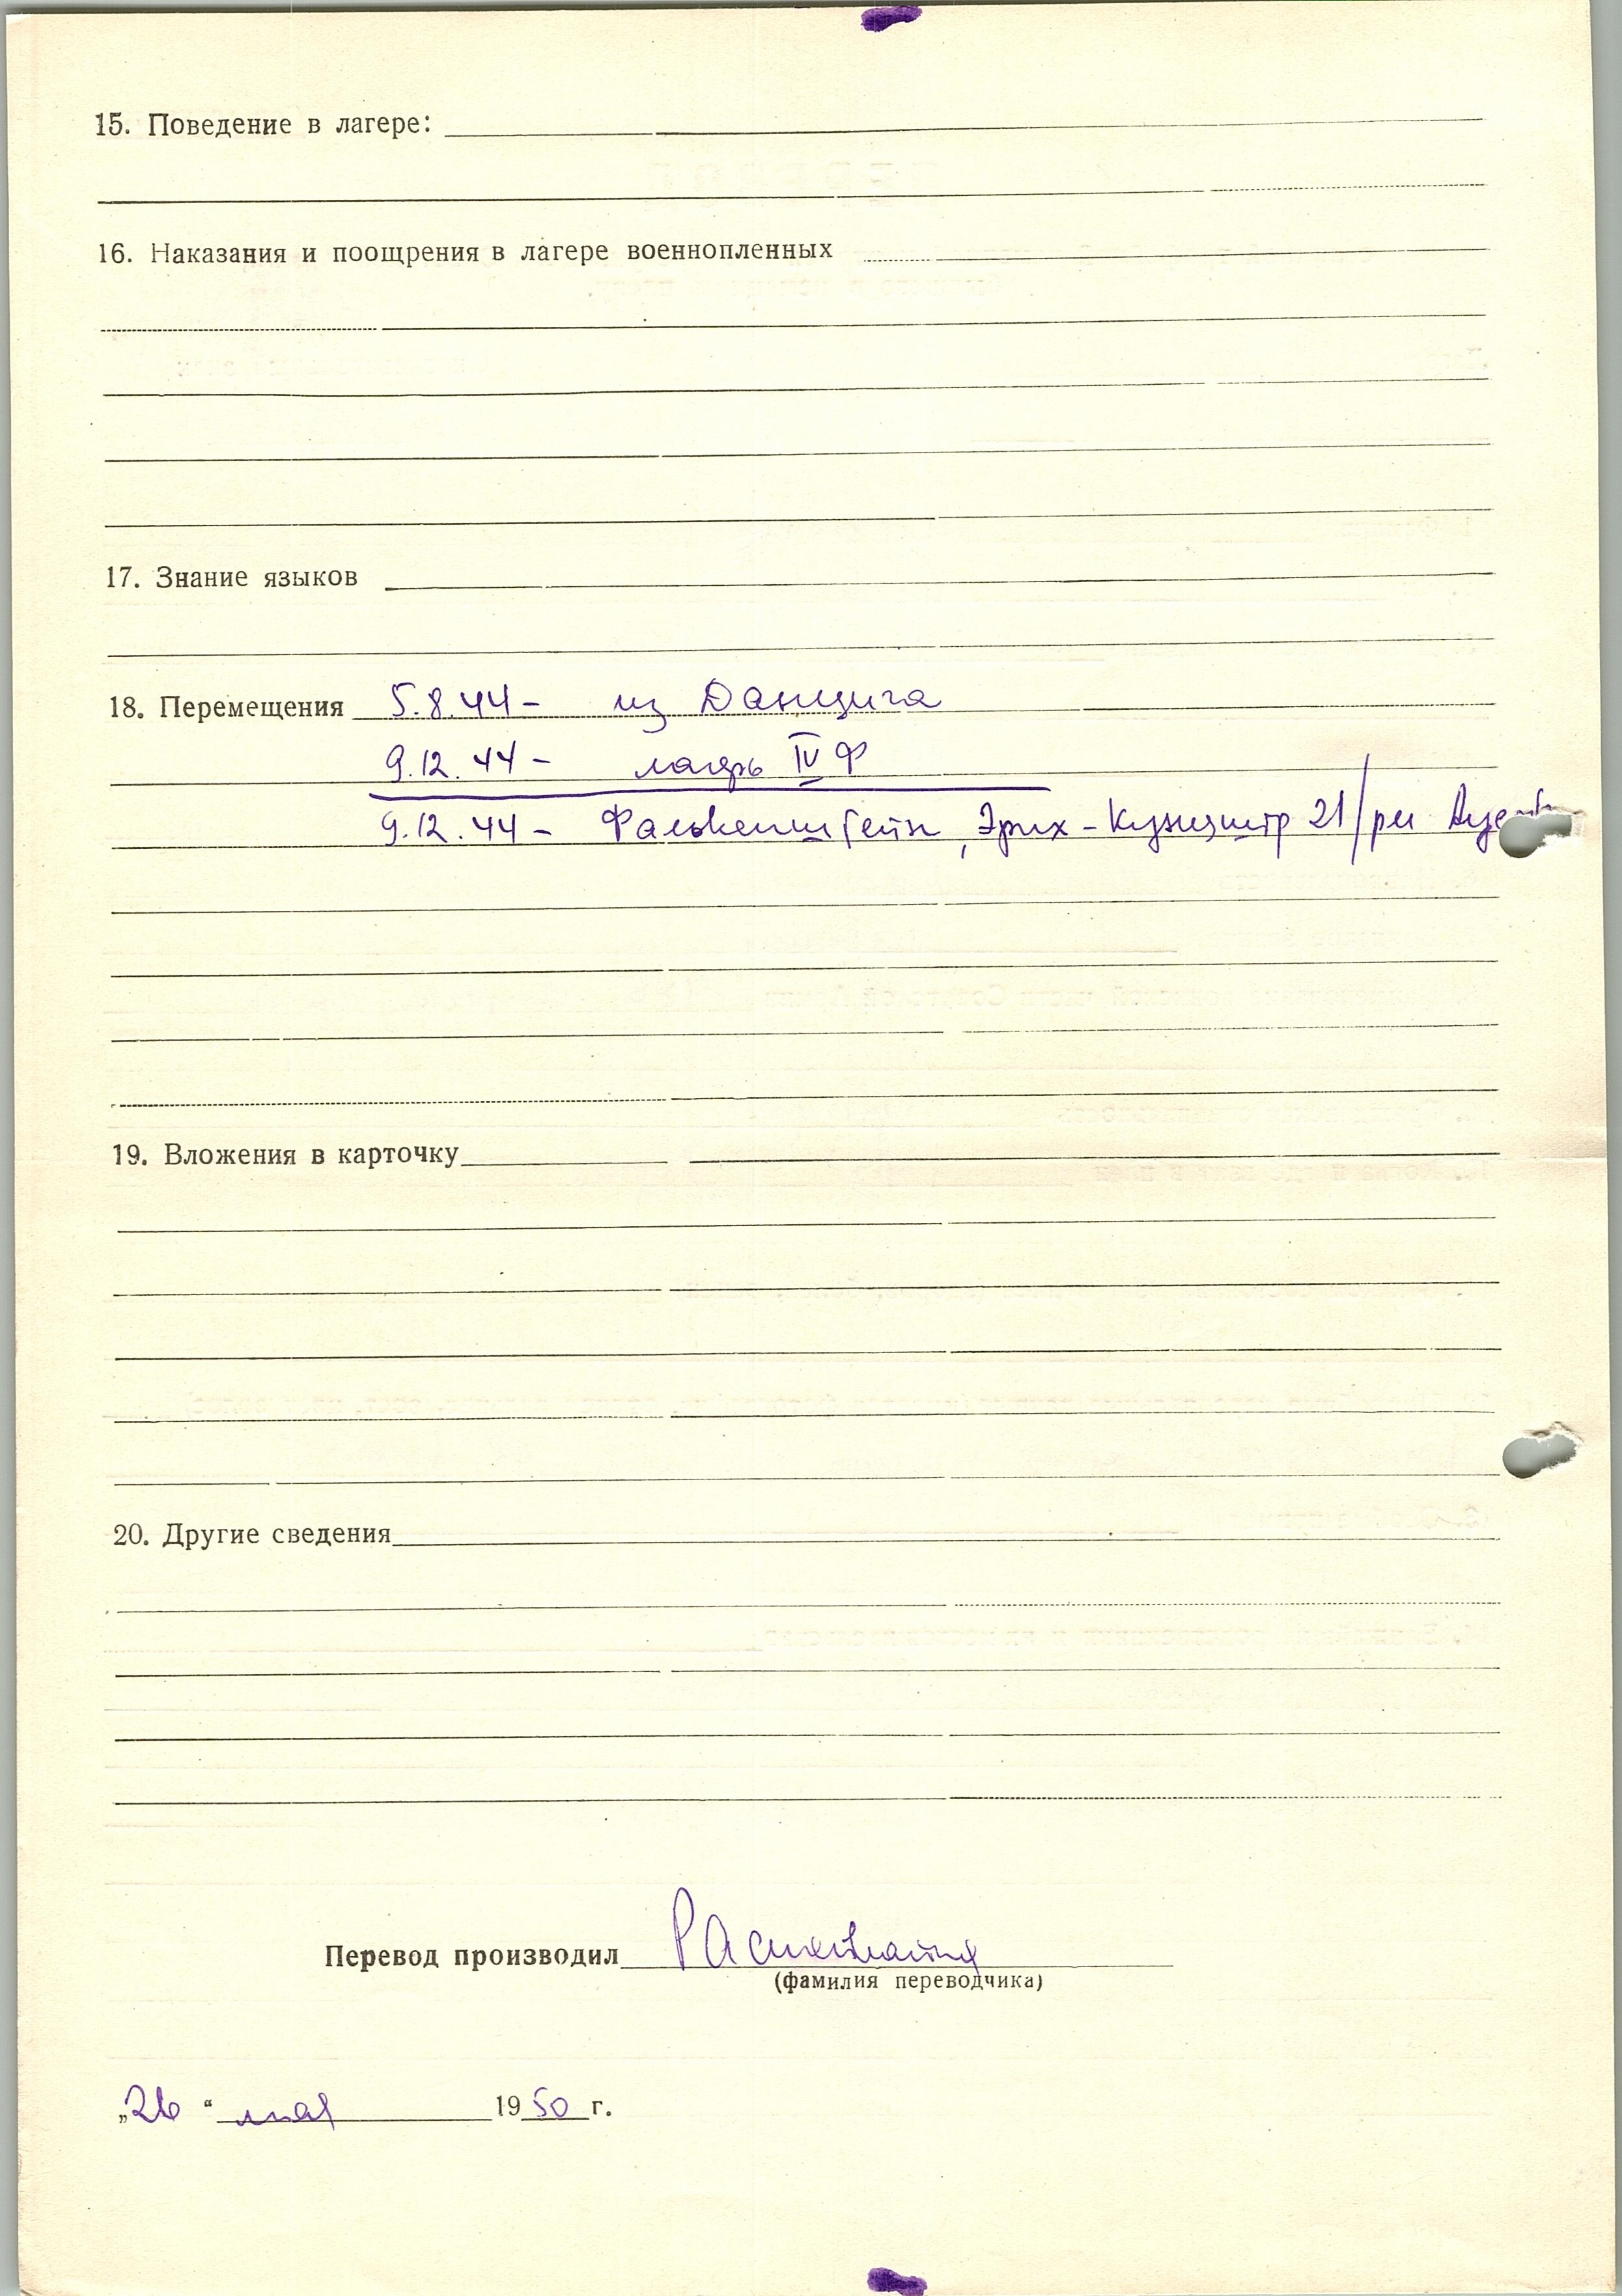 15. Поведение в лагере:
16. Наказания и поощрения в лагере военнопленных
17. Знание языков
18. Перемещения 5.8.44 - из Данцига
9.12.44 - лагерь IV Ф
9.12.44 - Фалькенштейн, Эрих-Кунцштр 21/рм
19. Вложения в карточку
20. Другие сведения
Перевод производил
(фамилия переводчика)
„26“ мая 1950 г.